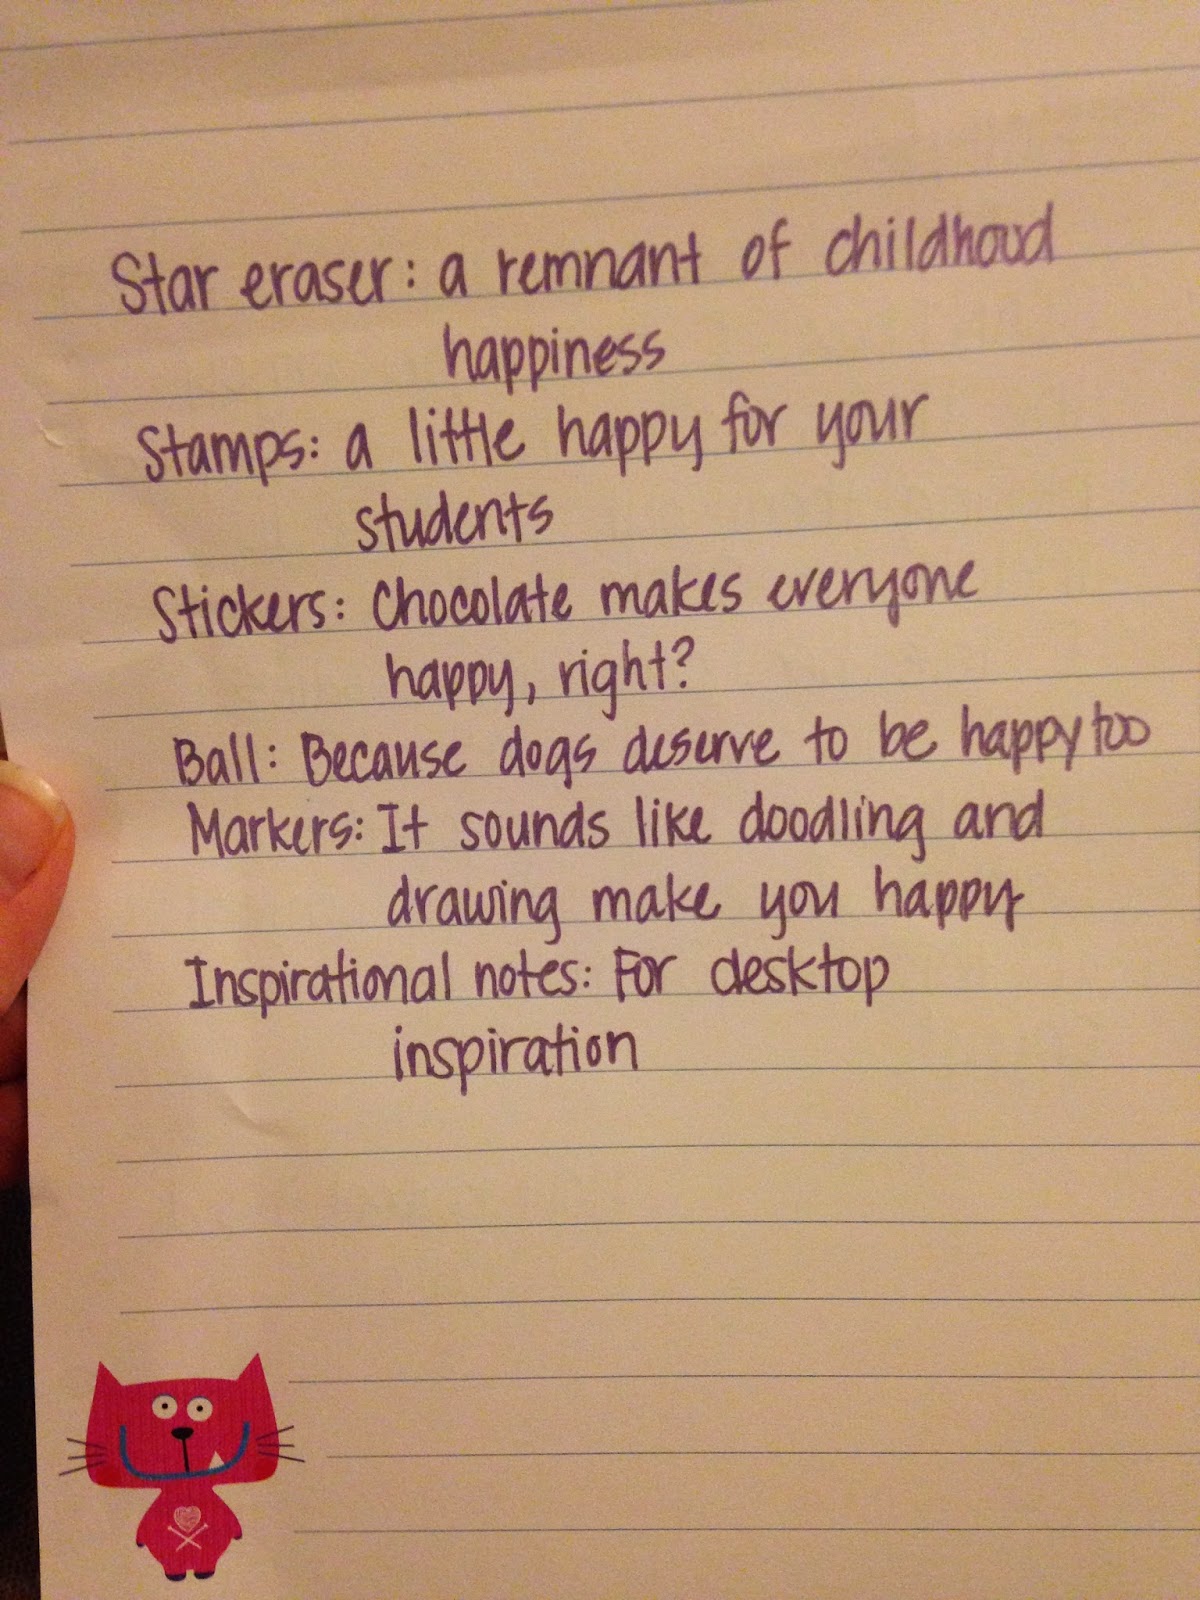 Star eraser: a remnant of childhood
happiness
Stamps: a little happy for your
students
Stickers: Chocolate makes everyone
happy, right?
Ball: Because dogs deserve to be happy too
Markers: It sounds like doodling and
drawing make you happy
Inspirational notes: For desktop
inspiration